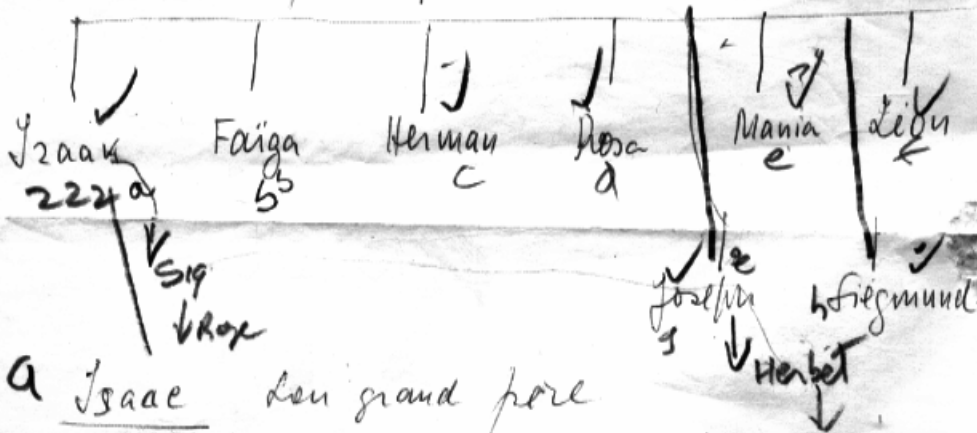 Izaak Faïga Herman Rosa Mania Léon
222 a b c d e f
Sig Joseph Siegmund
g h
Herbet
a Isaac grand père